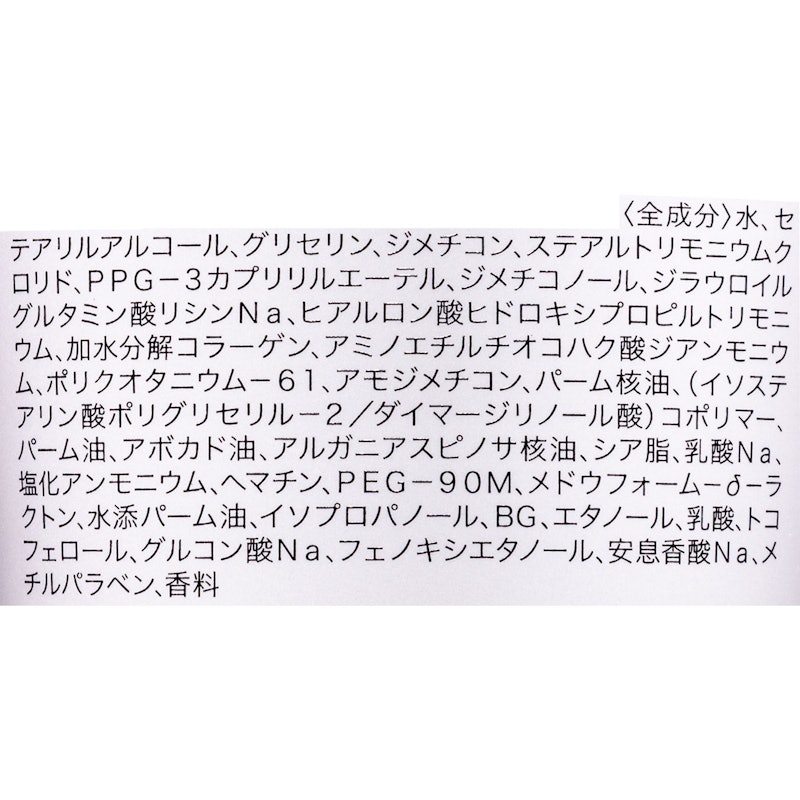 〈全成分〉水、セ
テアリルアルコール、グリセリン、ジメチコン、ステアルトリモニウムク
ロリド、PPG－3カプリリルエーテル、ジメチコノール、ジラウロイル
グルタミン酸リシンNa、ヒアルロン酸ヒドロキシプロピルトリモニ
ウム、加水分解コラーゲン、アミノエチルチオコハク酸ジアンモニウ
ム、ポリクオタニウム－61、アモジメチコン、パーム核油、（イソステ
アリン酸ポリグリセリル－2／ダイマージリノール酸）コポリマー、
パーム油、アボカド油、アルガニアスピノサ核油、シア脂、乳酸Na、
塩化アンモニウム、ヘマチン、PEG－90M、メドウフォーム－δ－ラ
クトン、水添パーム油、イソプロパノール、BG、エタノール、乳酸、トコ
フェロール、グルコン酸Na、フェノキシエタノール、安息香酸Na、メ
チルパラベン、香料